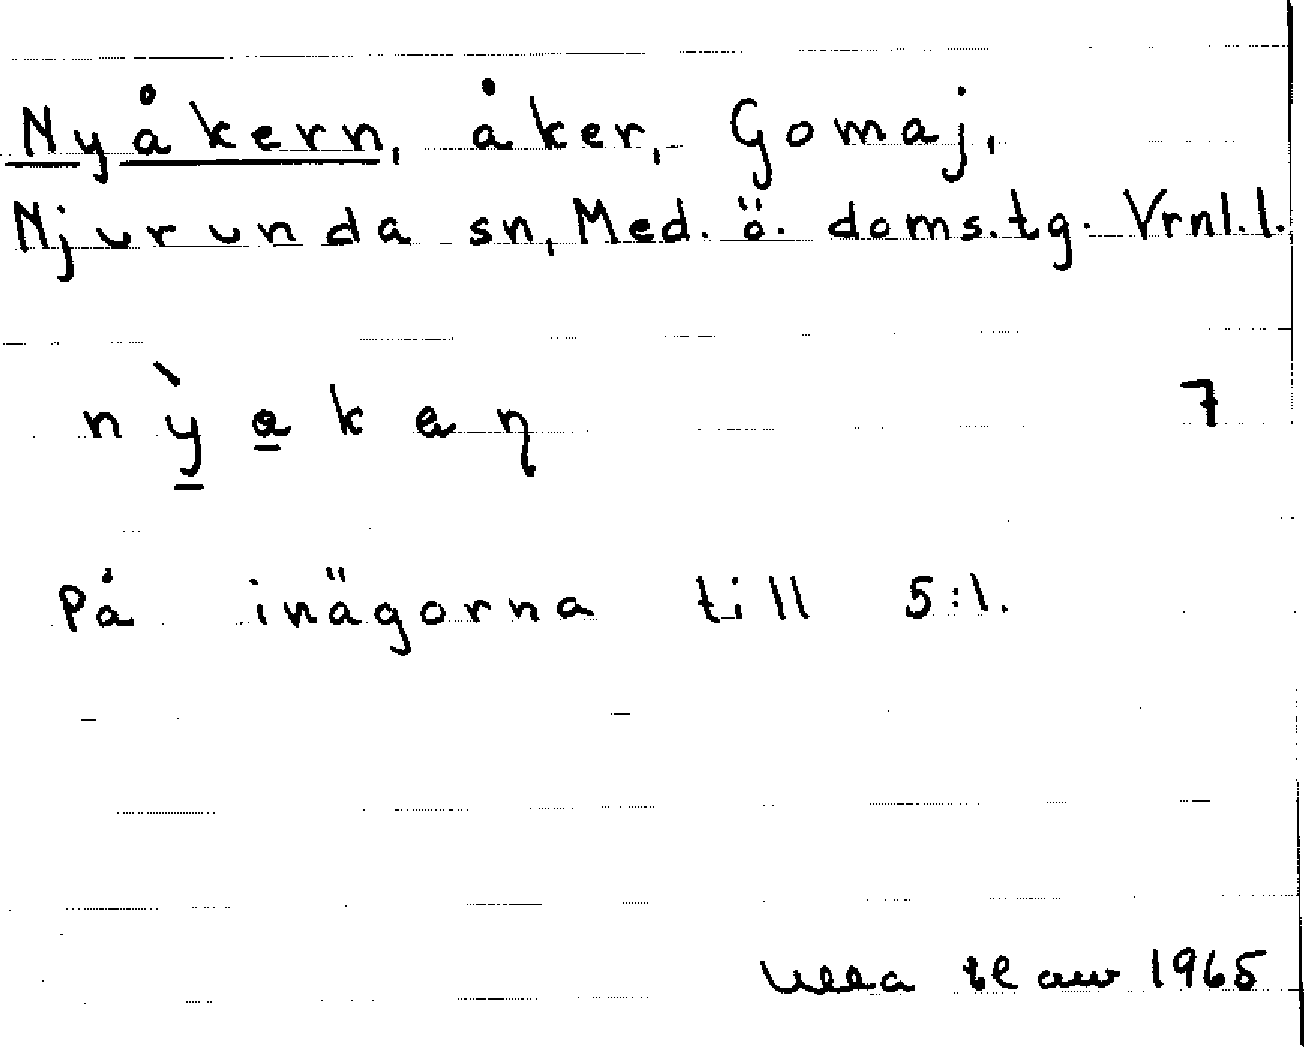 Nyåkern, åker, Gomaj,
Njurunda sn, Med. ö. doms.tg. Vrnl.l.
7
På inägorna till 5:1.
Ulla 1965